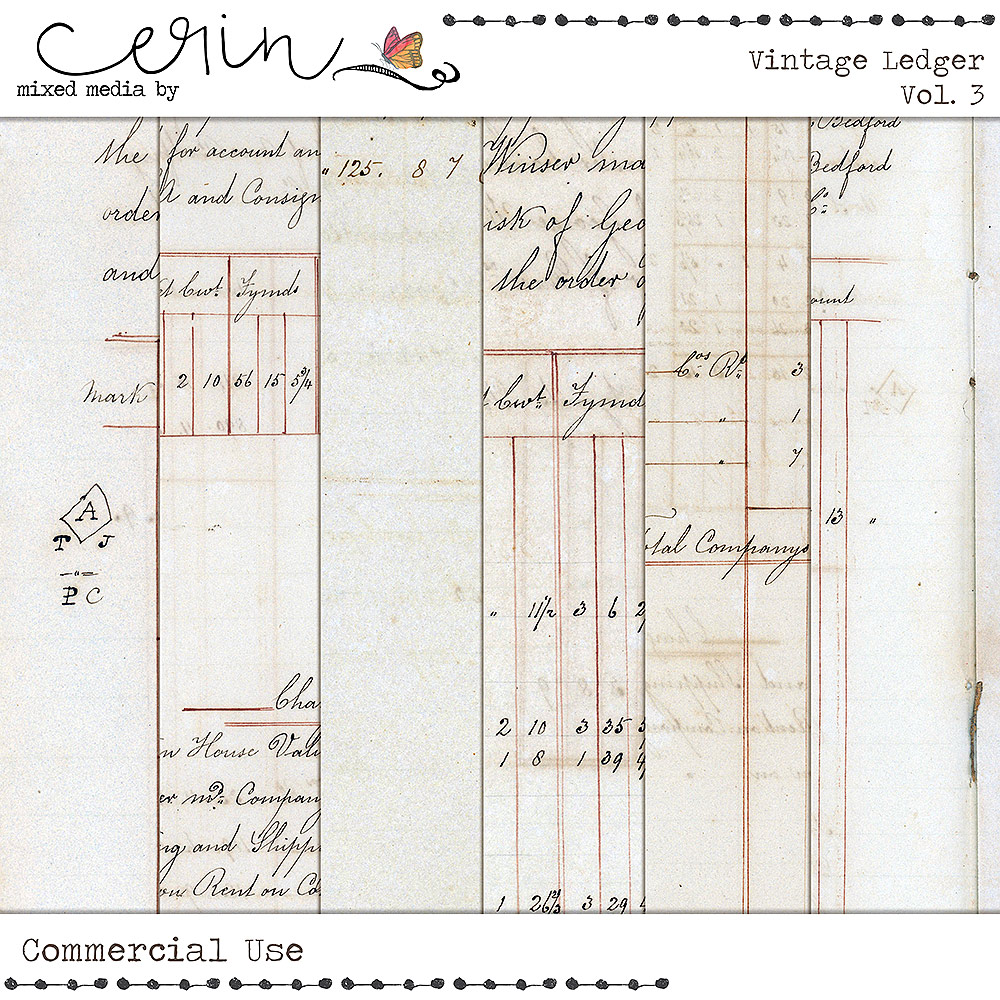 cerin
mixed media by
Vintage Ledger
Vol. 3
the
order
and
mark
A
T J
P C
for account an
A and Consign
Cwt Fymds
2 10 56 15 5¾
Cha
House Valu
er Company
ng and Shippi
on Rent on Co
" 125. 8 7
Winser ma
isk of Geo
the order o
Cwt Fymd
" 11½ 3 6 2
2 10 3 35 5
1 8 1 39 4
1 26⅔ 3 29 4
Cos Rs 3
" 1
" 7
otal Companys
Bedford
Bedford
ount
13 "
Commercial Use